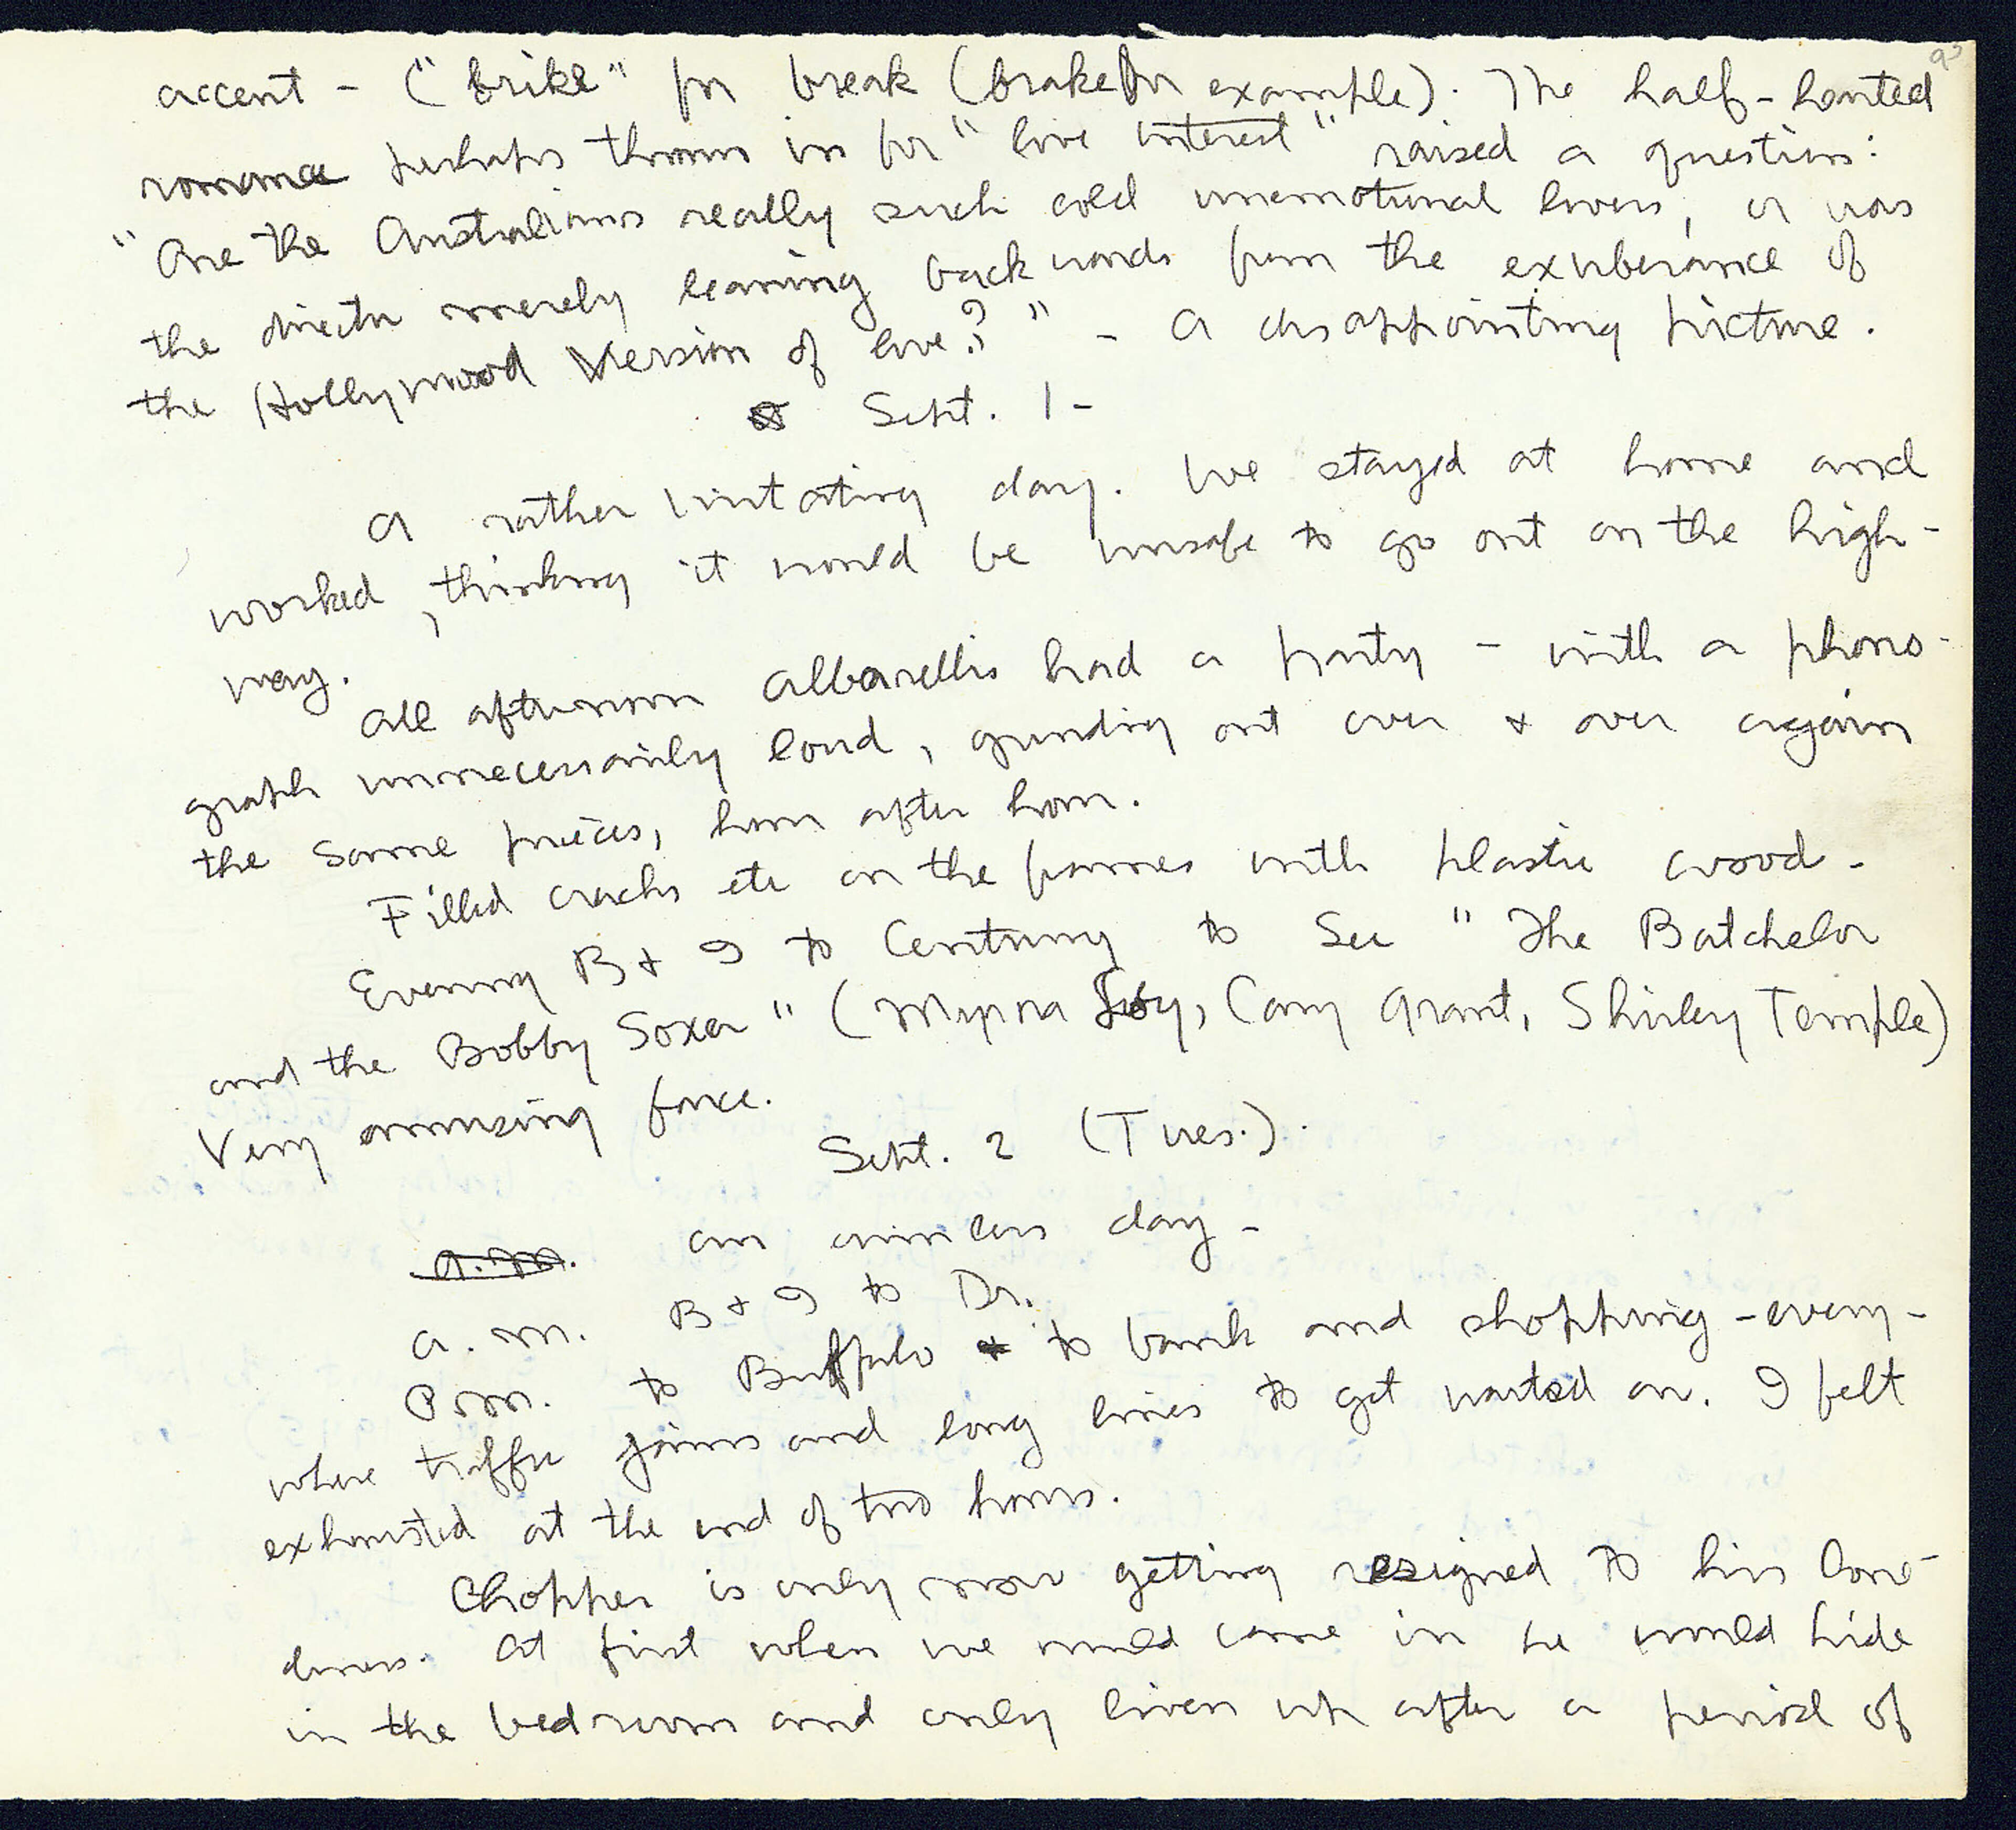 accent - ("brike" for break (brake for example). The half-hearted
romance perhaps thrown in for "love interest" raised a question:
"Are the Australians really such cold unemotional lovers, or was
the director merely leaning backwards from the exuberance of
the Hollywood Version of love?" - A disappointing picture.
Sept. 1 -
A rather irritating day. We stayed at home and
worked, thinking it would be unsafe to go out on the high-
way.
All afternoon Albarellis had a party - with a phono-
graph unnecessarily loud, grinding out over & over again
the same pieces, hour after hour.
Filled cracks etc on the frames with plastic wood -
Evening B & I to Century to see "The Batchelor
and the Bobby Soxer" (Myrna Loy, Cary Grant, Shirley Temple)
Very amusing farce.
Sept. 2 (Tues.).
a.m. an aimless day -
a.m. B & I to Dr.
P.m. to Buffalo to bank and shopping - every-
where traffic jams and long lines to get waited on. I felt
exhausted at the end of two hours.
Chopper is only now getting resigned to his lone-
liness. At first when we would come in he would hide
in the bedroom and only liven up after a period of